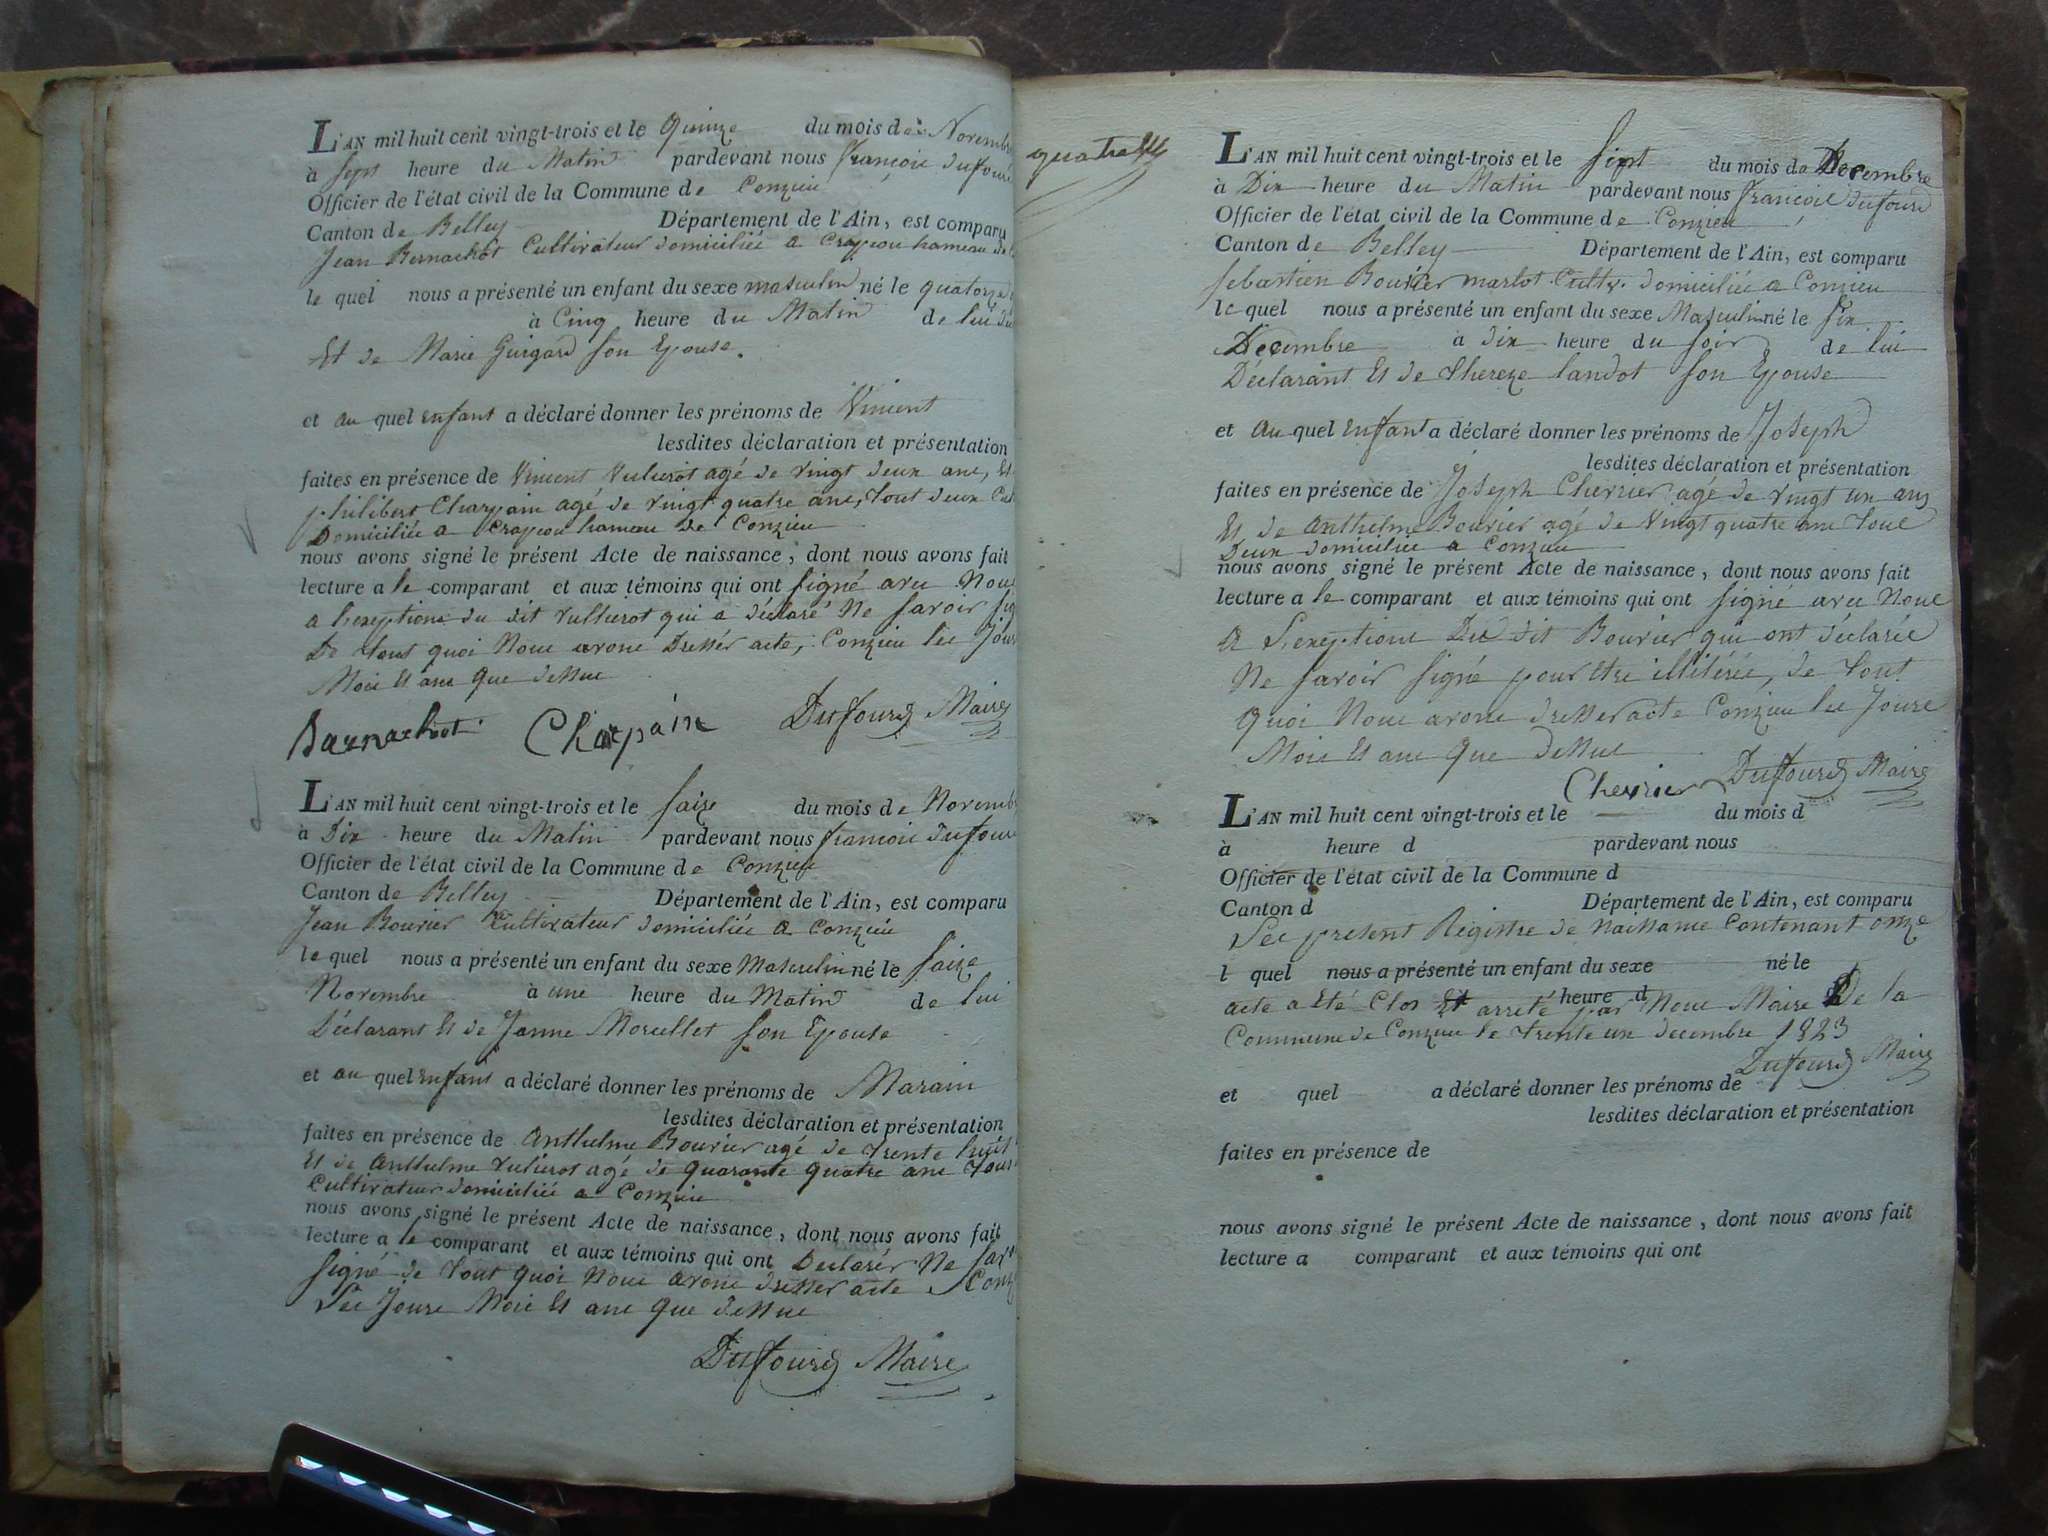 L'AN mil huit cent vingt-trois et le Quinze du mois de Novembre
à Sept heure du Matin pardevant nous françois Dufourd
Officier de l'état civil de la Commune de Conzieu
Canton de Belley Département de l'Ain, est comparu
Jean Bernachot Cultivateur domiciliée a Crapeou hameau de
le quel nous a présenté un enfant du sexe masculin né le quatorze
à Cinq heure du Matin de lui
Et de Marie Guigard son Epouse.
et au quel enfant a déclaré donner les prénoms de Vincent
lesdites déclaration et présentation
faites en présence de Vincent Vulierot agé de vingt deux ans, Et
philibert Charpain agé de vingt quatre ans, tout deux
Domiciliée a Crapeou hameau de Conzieu
nous avons signé le présent Acte de naissance, dont nous avons fait
lecture a le comparant et aux témoins qui ont signé avec Nous
a l'exeptions du dit Vullierot qui a déclaré Ne savoir
De tout quoi Nous avons Dresser acte, Conzieu les Jour
Mois Et ans Que dessus
Barnachot Charpain Dufourd Maire
L'AN mil huit cent vingt-trois et le saize du mois de Novembre
à Dix heure du Matin pardevant nous françois Dufourd
Officier de l'état civil de la Commune de Conzieu
Canton de Belley Département de l'Ain, est comparu
Jean Bourier Cultivateur domiciliée a Conzieu
le quel nous a présenté un enfant du sexe Masculin né le saize
Novembre à une heure du Matin de lui
Déclarant Et de Janne Morcellet son Epouse
et au quel enfant a déclaré donner les prénoms de Marain
lesdites déclaration et présentation
faites en présence de Anthelme Bourier agé de trente huit
Et de Anthelme Vulierot agé de quarante quatre ans tous
Cultivateur domiciliée a Conzieu
nous avons signé le présent Acte de naissance, dont nous avons fait
lecture a le comparant et aux témoins qui ont Declarér Ne
signé de tout quoi Nous avons dresser acte
Les Jours Mois Et ans Que dessus
Dufourd Maire
quatre
L'AN mil huit cent vingt-trois et le sept du mois de Decembre
à Dix heure du Matin pardevant nous françois Dufourd
Officier de l'état civil de la Commune de Conzieu
Canton de Belley Département de l'Ain, est comparu
sebastien Bourier marlot Cultr. domiciliée a Conzieu
le quel nous a présenté un enfant du sexe Masculin né le six
Decembre à dix heure du soir de lui
Déclarant Et de thereze landot son Epouse
et au quel enfant a déclaré donner les prénoms de Joseph
lesdites déclaration et présentation
faites en présence de Joseph Chevrier agé de vingt un ans
Et de Anthelme Bourier agé de vingt quatre ans tous
Deux domiciliée a Conzieu
nous avons signé le présent Acte de naissance, dont nous avons fait
lecture a le comparant et aux témoins qui ont signé avec Nous
a l'exeptions Du dit Bourier qui ont déclarée
Ne savoir signé pour Etre illitérée, de tout
Quoi Nous avons dresser acte Conzieu les Jours
Mois Et ans Que dessus
Chevrier Dufourd Maire
L'AN mil huit cent vingt-trois et le du mois d
à heure d pardevant nous
Officier de l'état civil de la Commune d
Canton d Département de l'Ain, est comparu
Les present Régistre de naissance Contenant onze
l quel nous a présenté un enfant du sexe né le
heure d
acte a Eté Clos Et arreté par Nous Maire De la
Commune de Conzieu le trente un decembre 1823
Dufourd Maire
et quel a déclaré donner les prénoms de
lesdites déclaration et présentation
faites en présence de
nous avons signé le présent Acte de naissance, dont nous avons fait
lecture a comparant et aux témoins qui ont